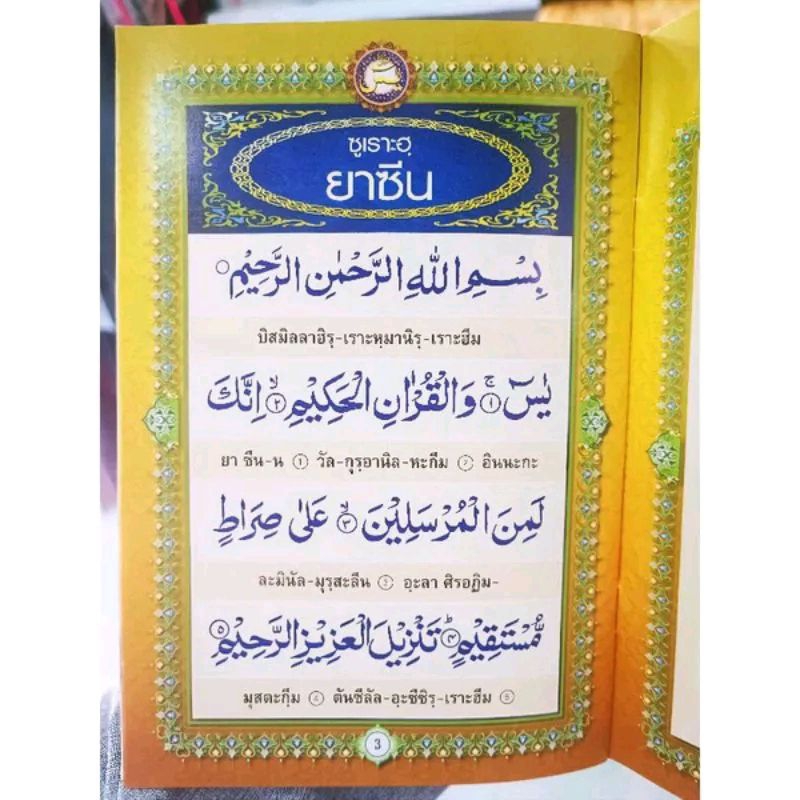 يس
ซูเราะฮฺ
ยาซีน
بِسْمِ اللّٰهِ الرَّحْمٰنِ الرَّحِيْمِ
บิสมิลลาฮิรฺ-เราะหฺมานิรฺ-เราะฮีม
يٰسٓ ۚ ﴿١﴾ وَالْقُرْاٰنِ الْحَكِيْمِ ۙ ﴿٢﴾ اِنَّكَ
ยา ซีน-น ① วัล-กุรฺอานิล-หะกีม ② อินนะกะ
لَمِنَ الْمُرْسَلِيْنَ ۙ ﴿٣﴾ عَلٰى صِرَاطٍ
ละมินัล-มุรฺสะลีน ③ อะลา ศิรอฏิม-
مُّسْتَقِيْمٍ ۗ ﴿٤﴾ تَنْزِيْلَ الْعَزِيْزِ الرَّحِيْمِ ۙ ﴿٥﴾
มุสตะกีม ④ ตันซีลัล-อะซีซิรฺ-เราะฮีม ⑤
3